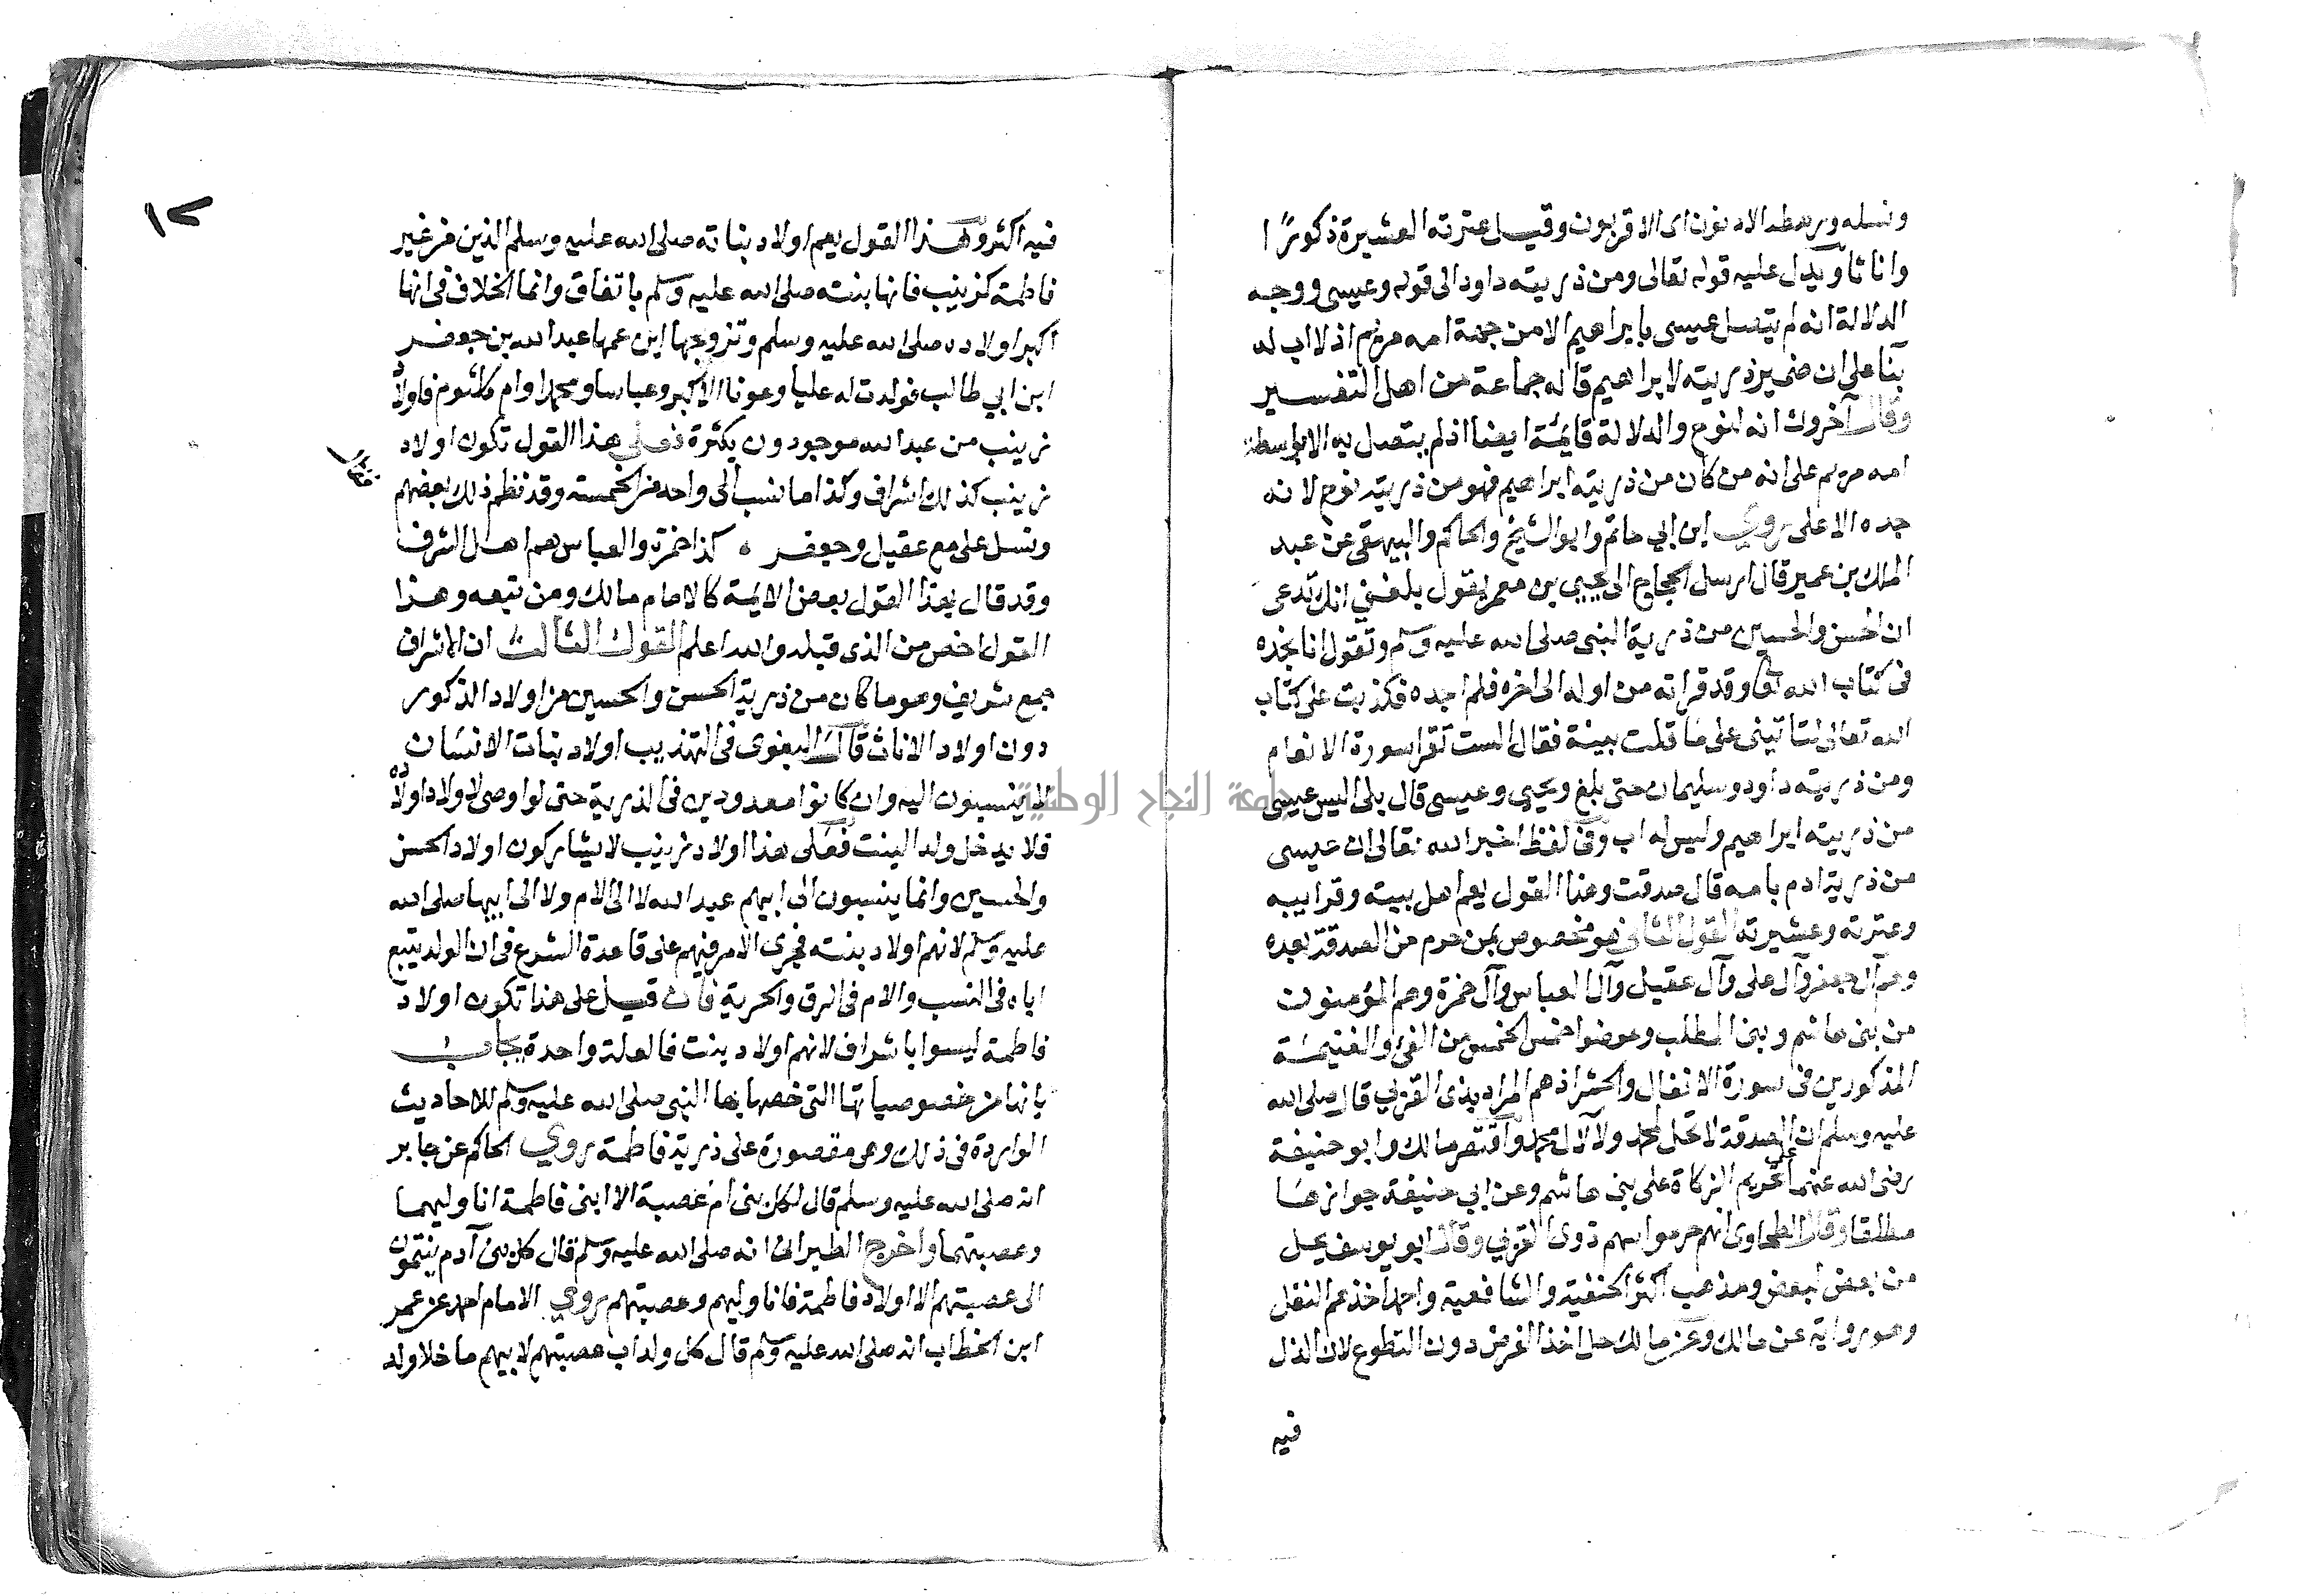 ونسله ورهطه الادنون اى الاقربون وقيل عترته العشيرة ذكورًا
واناثا ويدل عليه قوله تعالى ومن ذريته داود الى قوله وعيسى ووجه
الدلالة انه لم يتصل عيسى بابراهيم الا من جهة امه مريم اذ لا اب له
بنا على ان ضمير ذريته لابراهيم قاله جماعة من اهل التفسير
وقال آخرون انه لنوح والدلالة قائمة ايضا اذ لم يتصل به الا بواسطة
امه مريم على انه من كان من ذرية ابراهيم فهو من ذرية نوح لانه
جده الاعلى روي ابن ابي حاتم وابو الشيخ والحاكم والبيهقى عن عبد
الملك بن عمير قال ارسل الحجاج الى يحيى بن معمر يقول بلغني انك تدعى
ان الحسن والحسين من ذرية النبى صلى الله عليه وسلم وتقول انا نجده
فى كتاب الله تعا وقد قراته من اوله الى اخره فلم اجده فكذبت على كتاب
الله تعالى لتاتينى على ما قلت ببينة فقال الست تقرا سورة الانعام
ومن ذريته داود وسليمان حتى بلغ ويحيى وعيسى قال بلى اليس عيسى
من ذرية ابراهيم وليس له اب وفى لفظ اخبر الله تعالى ان عيسى
من ذرية ادم بامه قال صدقت وهذا القول يعم اهل بيته وقرابيه
وعترته وعشيرته القول الثانى هو مخصوص بمن حرم من الصدقة بعده
وهم آل جعفر وآل على وآل عقيل وآل العباس وآل حمزة وهم المؤمنون
من بنى هاشم وبنى المطلب وعوضوا خمس الخمس من الفئ والغنيمة
المذكورين فى سورة الانفال والحشر اذ هم المراد بذى القربي قال صلى الله
عليه وسلم ان الصدقة لا تحل لمحمد ولا لآل محمد واقتصر مالك وابو حنيفة
رضى الله عنهما على تحريم الزكاة على بنى هاشم وعن ابي حنيفة جوازها
مطلقا وقال الطحاوى انهم حرموا سهم ذوى القربي وقال ابو يوسف يحل
من بعض لبعض ومذهب اكثر الحنفية والشافعية واحمد اخذهم النفل
وهو رواية عن مالك وعن مالك حل اخذ الفرض دون التطوع لان الذل
فيه
١٢
فيه اكثر وهذا القول يعم اولاد بناته صلى الله عليه وسلم الذين من غير
فاطمة كزينب فانها بنته صلى الله عليه وسلم باتفاق وانما الخلاف فى انها
اكبر اولاده صلى الله عليه وسلم وتزوجها ابن عمها عبد الله بن جعفر
ابن ابي طالب فولدت له عليا وعونا الاكبر وعباسا ومحمدا وام كلثوم فاولاد
زينب من عبد الله موجودون بكثرة فعلى هذا القول تكون اولاد
زينب كذلك اشراف وكذا ما نسب الى واحد من الخمسة وقد نظم ذلك بعضهم
ونسل على مع عقيل وجعفر ۰ كذا حمزة والعباس هم اهل الشرف
وقد قال بهذا القول بعض الايمة كالامام مالك ومن تبعه وهذا
القول اخص من الذى قبله والله اعلم القول الثالث ان الاشراف
جمع شريف وهو ما كان من ذرية الحسن والحسين من اولاد الذكور
دون اولاد الاناث قال البغوى فى التهذيب اولاد بنات الانسان
لا ينسبون اليه وان كانوا معدودين فى الذرية حتى لو اوصى لاولاد اولاد
فلا يدخل ولد البنت فعلى هذا اولاد زينب لا يشاركون اولاد الحسن
والحسين وانما ينسبون الى ابيهم عبد الله لا الى الام ولا الى ابيها صلى الله
عليه وسلم لانهم اولاد بنته فجرى الامر فيهم على قاعدة الشرع فى ان الولد يتبع
اباه فى النسب والام فى الرق والحرية فان قيل على هذا تكون اولاد
فاطمة ليسوا باشراف لانهم اولاد بنت فالعلة واحدة يجاب
بانها من خصوصياتها التى خصها بها النبى صلى الله عليه وسلم للاحاديث
الواردة فى ذلك وهى مقصورة على ذرية فاطمة روي الحاكم عن جابر
انه صلى الله عليه وسلم قال لكل بنى ام عصبة الا ابنى فاطمة انا وليهما
وعصبتهما واخرج الطبرانى انه صلى الله عليه وسلم قال كل بنى آدم ينتمون
الى عصبتهم الا اولاد فاطمة فانا وليهم وعصبتهم روي الامام احمد عن عمر
ابن الخطاب انه صلى الله عليه وسلم قال كل ولد اب عصبتهم لابيهم ما خلا ولد
جامعة النجاح الوطنية